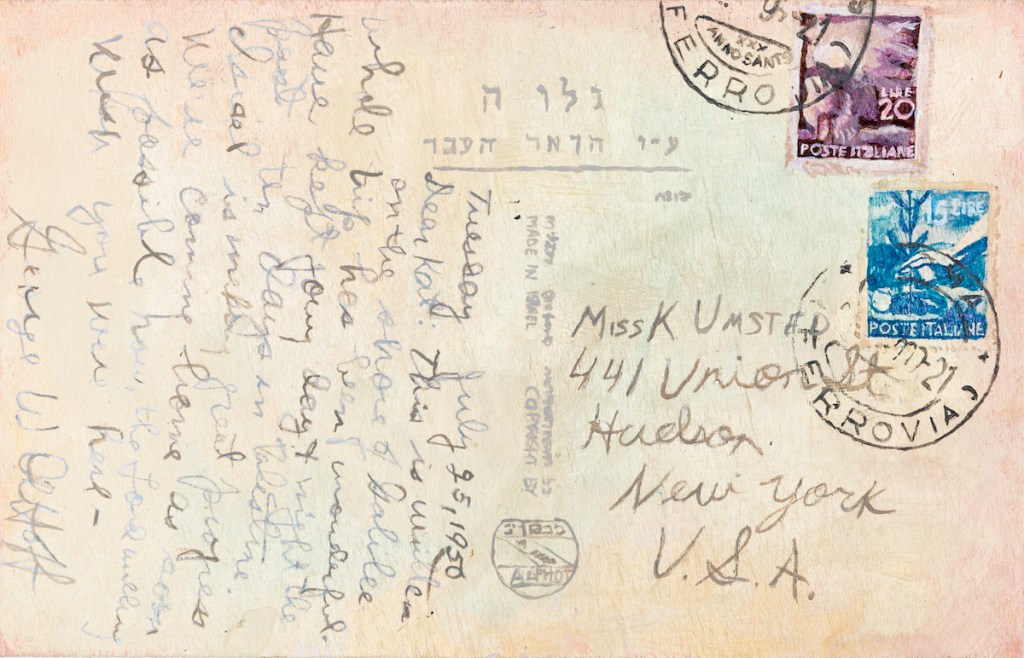 XXX
ANNO SANTO
FERRO
LIRE
20
POSTE ITALIANE
גלו ה
ע-י הדאר העבר
15 LIRE
POSTE ITALIANE
FERROVIA
21
MADE IN ISRAEL
COPYRIGHT BY
Tuesday July 25, 1950
Dear Kat: This is written
on the shore of Galilee
whole trip has been wonderful.
Have kept going day & night the
past ten days in Palestine.
Israel is making great progress
We're coming home as soon
as possible now,
Wish you were here –
George W
Miss K Umsted
441 Union St
Hudson.
New York
U.S.A.